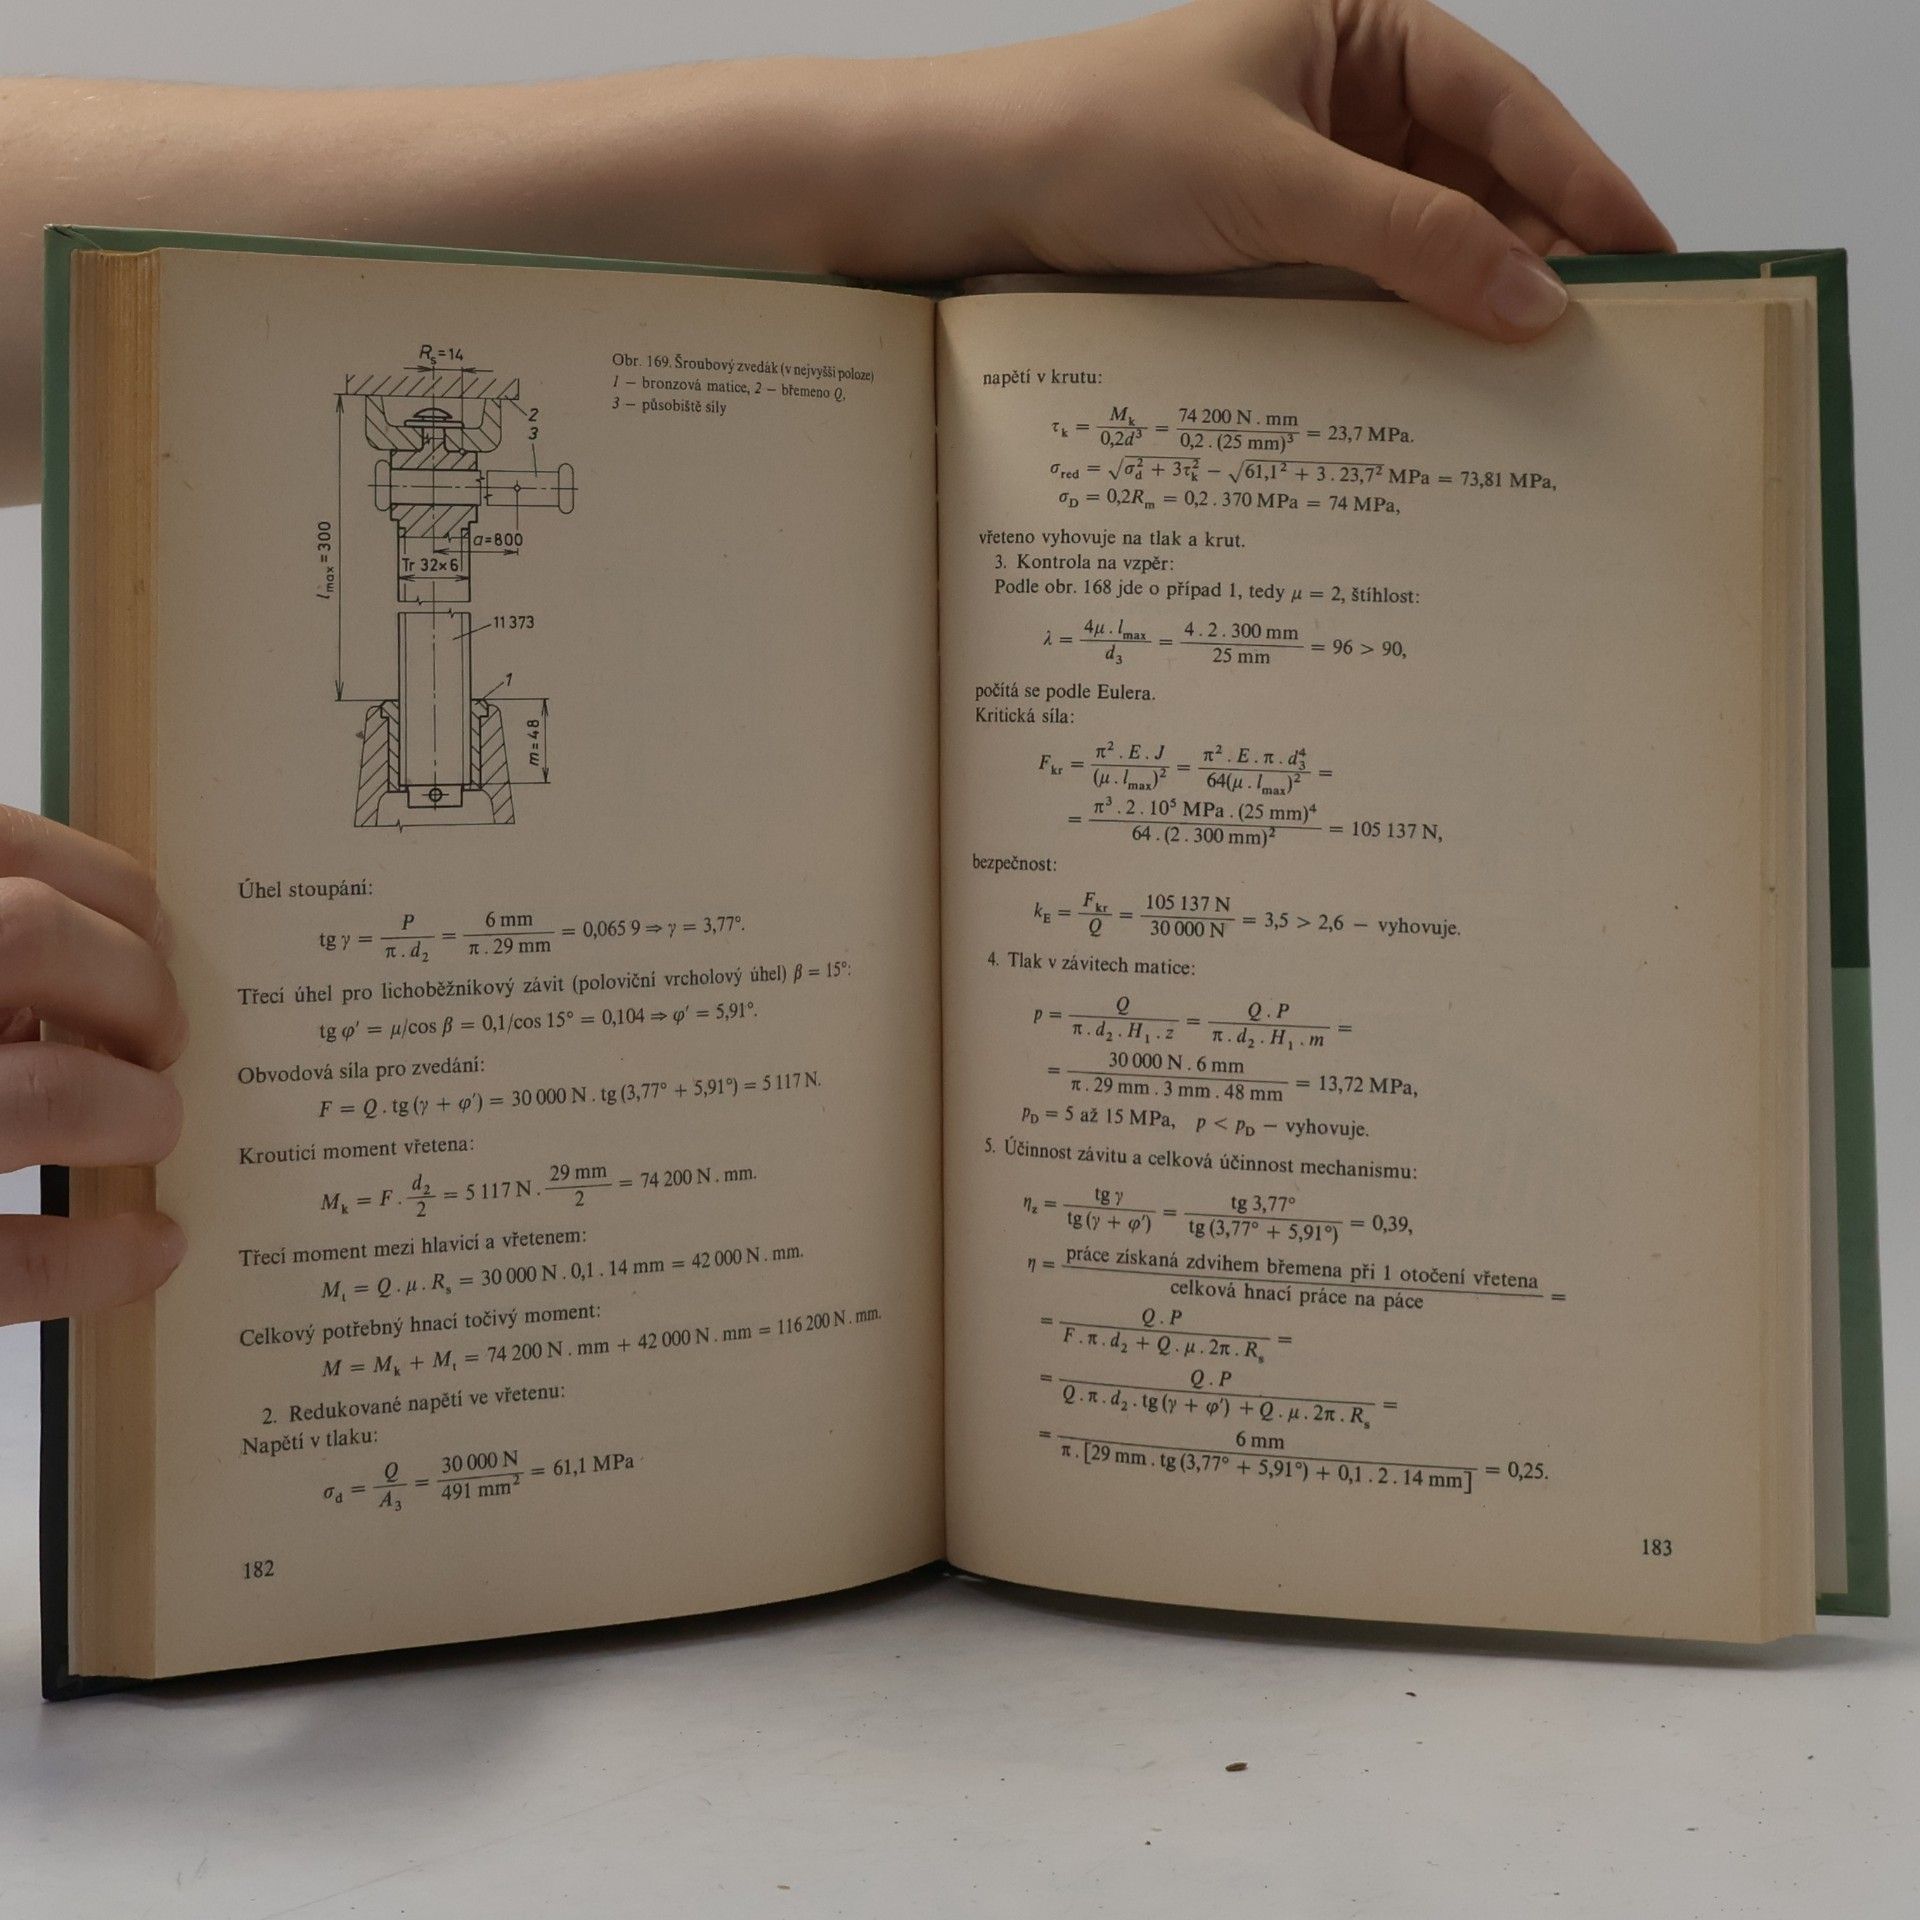 R_s=14
2
3
l_max=300
a=800
Tr 32×6
11 373
1
m=48
Obr. 169. Šroubový zvedák (v nejvyšší poloze)
1 – bronzová matice, 2 – břemeno Q,
3 – působiště síly
Úhel stoupání:
tg γ = P / (π . d_2) = 6 mm / (π . 29 mm) = 0,065 9 ⇒ γ = 3,77°.
Třecí úhel pro lichoběžníkový závit (poloviční vrcholový úhel) β = 15°:
tg φ′ = μ/cos β = 0,1/cos 15° = 0,104 ⇒ φ′ = 5,91°.
Obvodová síla pro zvedání:
F = Q . tg (γ + φ′) = 30 000 N . tg (3,77° + 5,91°) = 5 117 N.
Krouticí moment vřetena:
M_k = F . d_2 / 2 = 5 117 N . 29 mm / 2 = 74 200 N . mm.
Třecí moment mezi hlavicí a vřetenem:
M_t = Q . μ . R_s = 30 000 N . 0,1 . 14 mm = 42 000 N . mm.
Celkový potřebný hnací točivý moment:
M = M_k + M_t = 74 200 N . mm + 42 000 N . mm = 116 200 N . mm.
2. Redukované napětí ve vřetenu:
Napětí v tlaku:
σ_d = Q / A_3 = 30 000 N / 491 mm² = 61,1 MPa
182
napětí v krutu:
τ_k = M_k / 0,2d³ = 74 200 N . mm / (0,2 . (25 mm)³) = 23,7 MPa.
σ_red = √(σ_d² + 3τ_k²) – √(61,1² + 3 . 23,7²) MPa = 73,81 MPa,
σ_D = 0,2R_m = 0,2 . 370 MPa = 74 MPa,
vřeteno vyhovuje na tlak a krut.
3. Kontrola na vzpěr:
Podle obr. 168 jde o případ 1, tedy μ = 2, štíhlost:
λ = 4μ . l_max / d_3 = 4 . 2 . 300 mm / 25 mm = 96 > 90,
počítá se podle Eulera.
Kritická síla:
F_kr = π² . E . J / (μ . l_max)² = π² . E . π . d_3⁴ / 64(μ . l_max)² =
= π³ . 2 . 10⁵ MPa . (25 mm)⁴ / 64 . (2 . 300 mm)² = 105 137 N,
bezpečnost:
k_E = F_kr / Q = 105 137 N / 30 000 N = 3,5 > 2,6 – vyhovuje.
4. Tlak v závitech matice:
p = Q / (π . d_2 . H_1 . z) = Q . P / (π . d_2 . H_1 . m) =
= 30 000 N . 6 mm / (π . 29 mm . 3 mm . 48 mm) = 13,72 MPa,
p_D = 5 až 15 MPa, p < p_D – vyhovuje.
5. Účinnost závitu a celková účinnost mechanismu:
η_z = tg γ / tg (γ + φ′) = tg 3,77° / tg (3,77° + 5,91°) = 0,39,
η = práce získaná zdvihem břemena při 1 otočení vřetena / celková hnací práce na páce =
= Q . P / (F . π . d_2 + Q . μ . 2π . R_s) =
= Q . P / (Q . π . d_2 . tg (γ + φ′) + Q . μ . 2π . R_s) =
= 6 mm / (π . [29 mm . tg (3,77° + 5,91°) + 0,1 . 2 . 14 mm]) = 0,25.
183